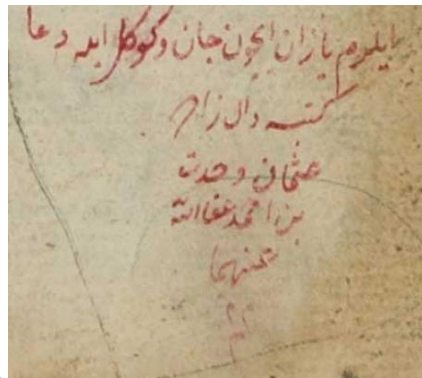 یازان ایچون جان وکوکل ایله دعا
کتبه دال زار
عثمان وحدت
بن احمد عفا الله
عنهما